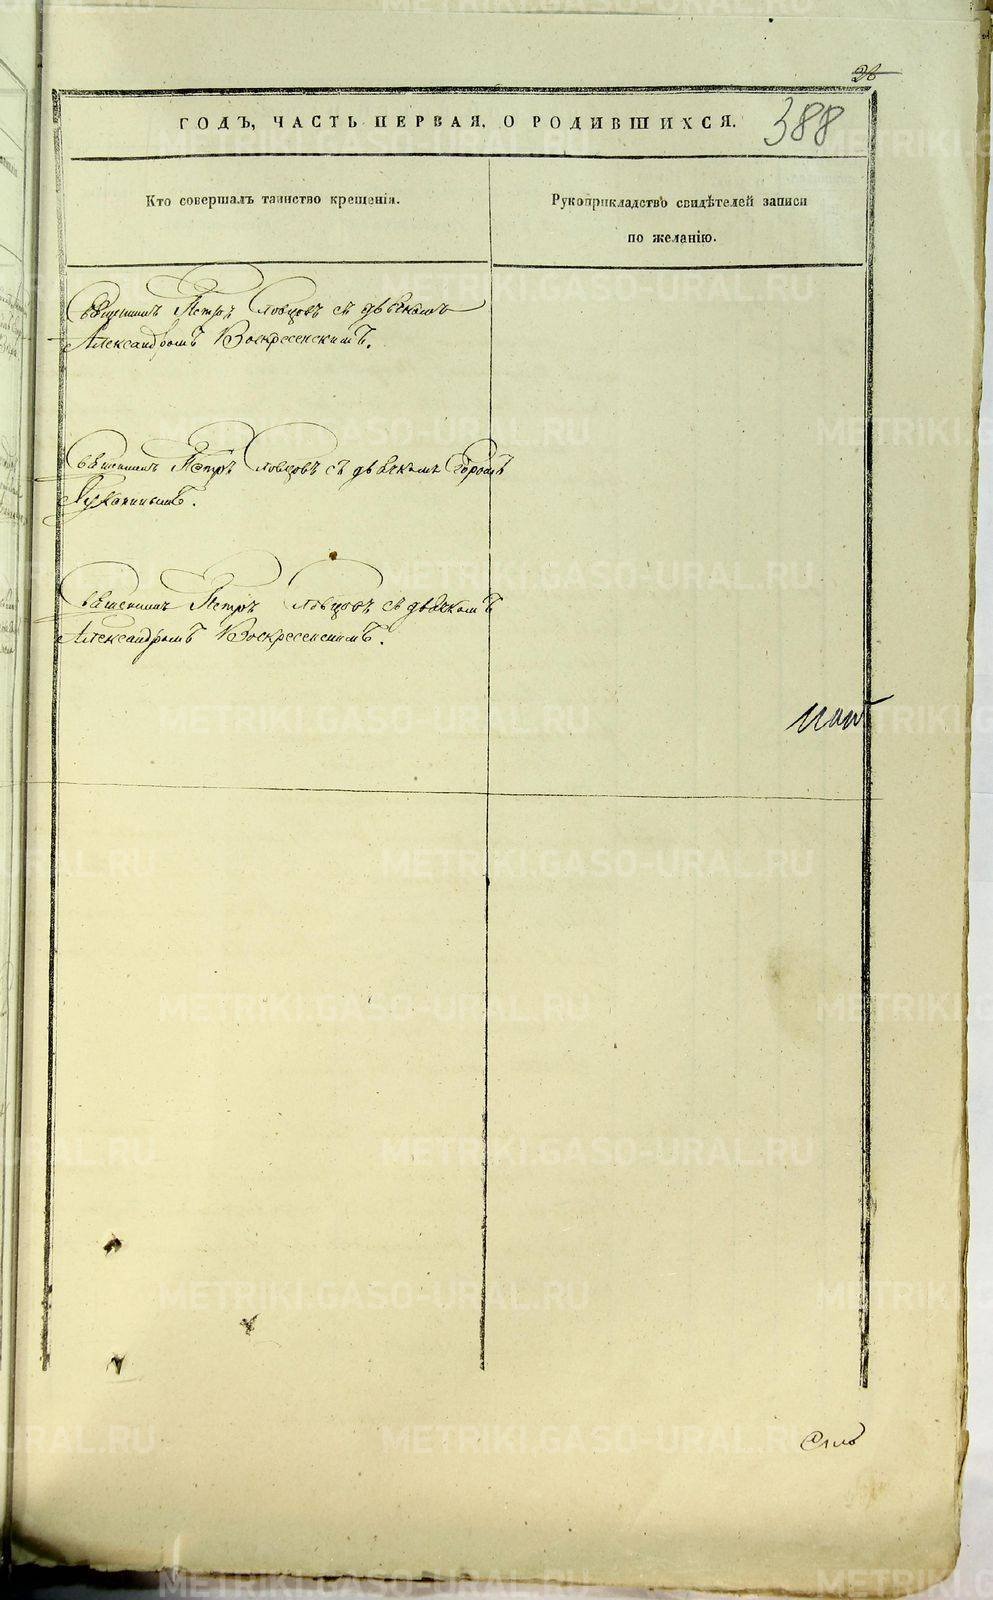 26
ГОДЪ, ЧАСТЬ ПЕРВАЯ, О РОДИВШИХСЯ.
388
Кто совершалъ таинство крещенія.
Рукоприкладство свидѣтелей записи
по желанію.
Священникъ Петръ Словцовъ съ дьячкомъ
Александромъ Воскресенскимъ.
Священникъ Петръ Словцовъ съ дьячкомъ
Священникъ Петръ Словцовъ съ дьячкомъ
Александромъ Воскресенскимъ.
METRIKI.GASO-URAL.RU